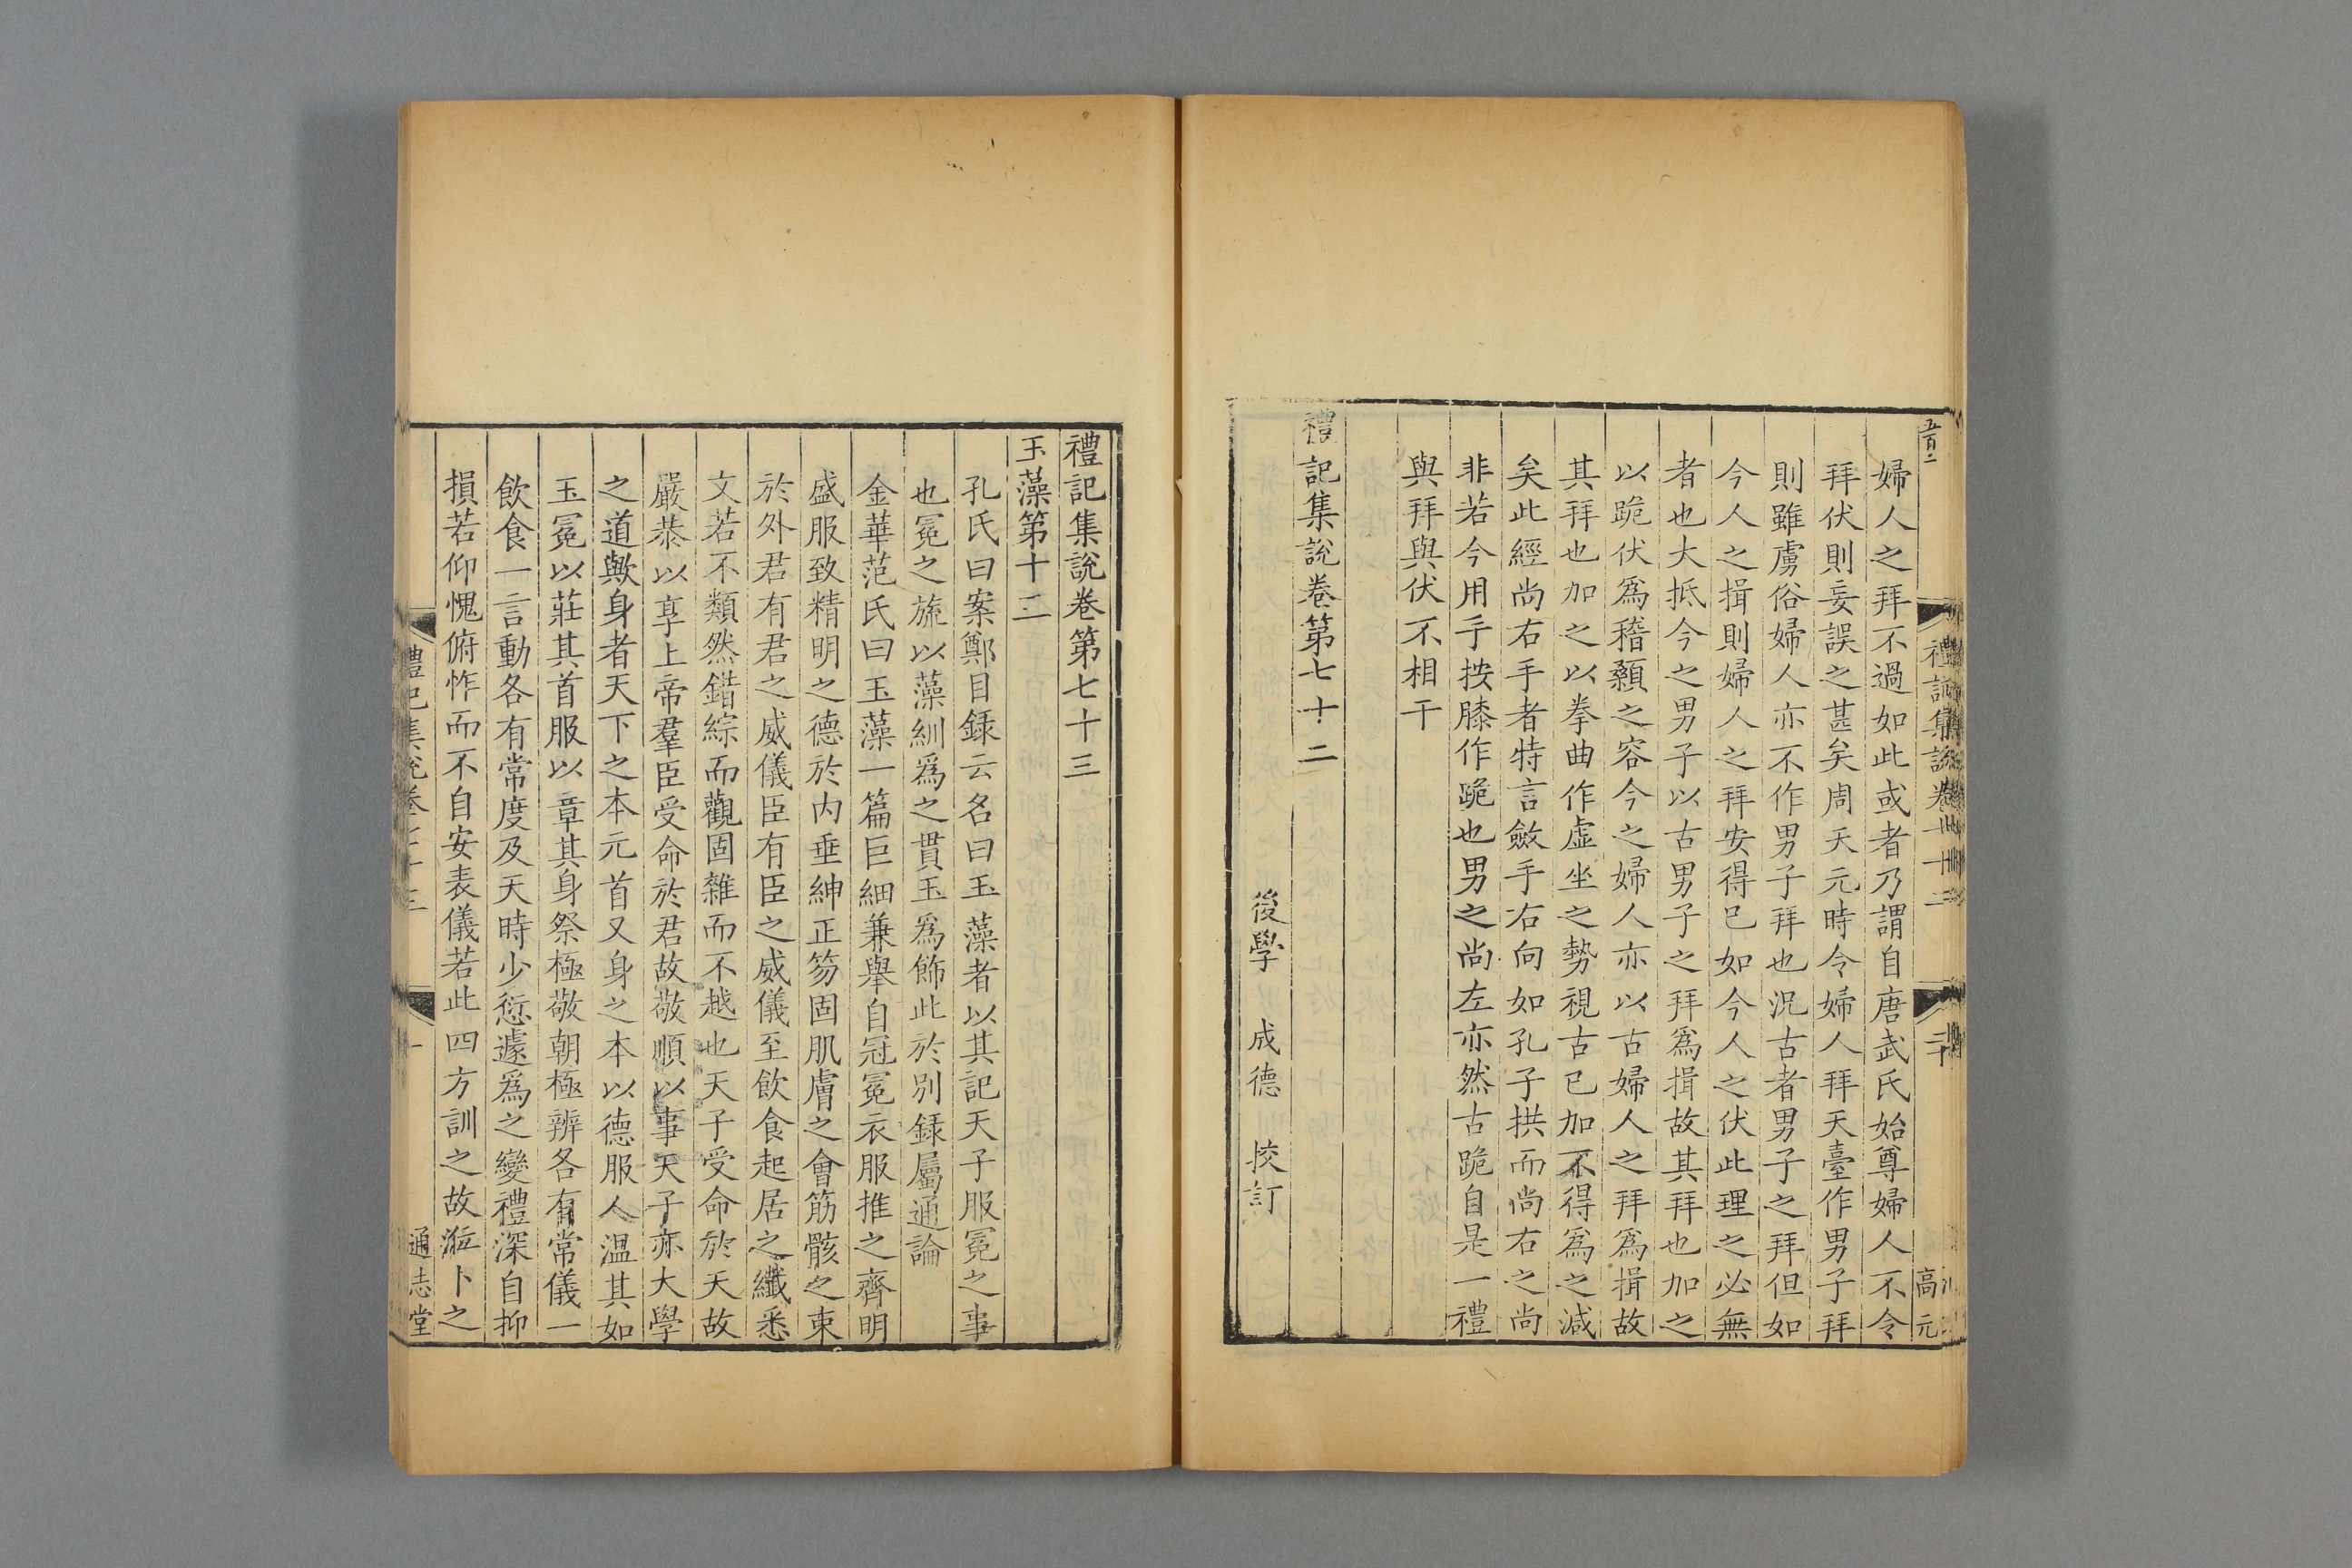 五百二
禮記集說卷七十二
二十
高元
婦人之拜不過如此或者乃謂自唐武氏始尊婦人不令
拜伏則妄誤之甚矣周天元時令婦人拜天臺作男子拜
則雖虜俗婦人亦不作男子拜也況古者男子之拜但如
今人之揖則婦人之拜安得已如今人之伏此理之必無
者也大抵今之男子以古男子之拜爲揖故其拜也加之
以跪伏爲稽顙之容今之婦人亦以古婦人之拜爲揖故
其拜也加之以拳曲作虛坐之勢視古已加不得爲之減
矣此經尚右手者特言斂手右向如孔子拱而尚右之尚
非若今用手按膝作跪也男之尚左亦然古跪自是一禮
與拜與伏不相干
禮記集說卷第七十二
後學 成德 挍訂
禮記集說卷第七十三
玉藻第十二
孔氏曰案鄭目録云名曰玉藻者以其記天子服冕之事
也冕之旒以藻紃爲之貫玉爲飾此於別録屬通論
金華范氏曰玉藻一篇巨細兼舉自冠冕衣服推之齊明
盛服致精明之德於内垂紳正笏固肌膚之會筋骸之束
於外君有君之威儀臣有臣之威儀至飲食起居之纖悉
文若不類然錯綜而觀固雜而不越也天子受命於天故
嚴恭以享上帝羣臣受命於君故敬順以事天子亦大學
之道歟身者天下之本元首又身之本以德服人溫其如
玉冕以莊其首服以章其身祭極敬朝極辨各有常儀一
飲食一言動各有常度及天時少愆遽爲之變禮深自抑
損若仰愧俯怍而不自安表儀若此四方訓之故涖卜之
禮記集說卷七十三
一
通志堂